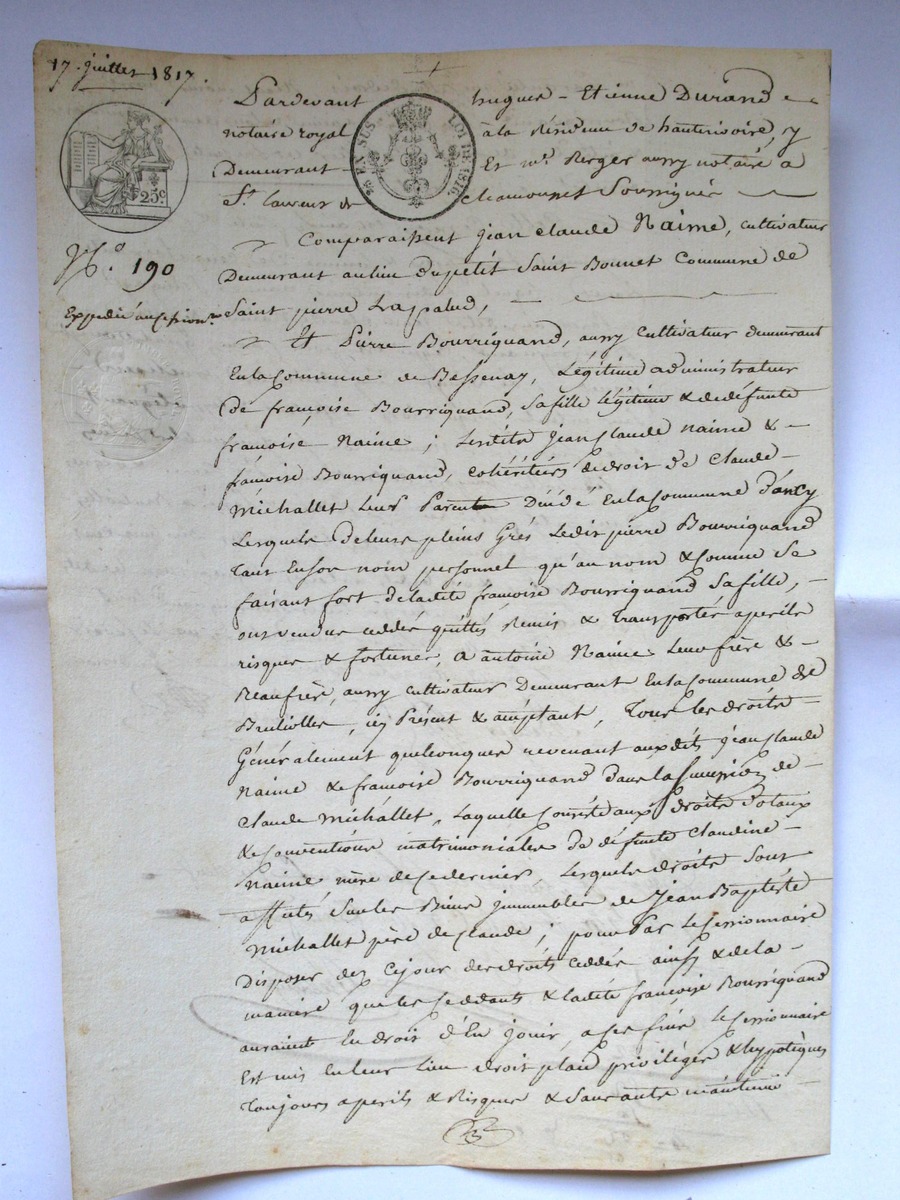 17 juillet 1817.
Pardevant hugues - Etienne Durand
notaire royal à la Résidence de hauterivoire, y
Demeurant - Et me. Berger aussy notaire a
St. Laurent de Chamousset Soussignés
25 EN SUS LOI DE 1816.
25c
Comparaissent jean claude Naime, cultivateur
No. 190
Demeurant au lieu Du petit Saint Bonnet Commune de
Expedié au cessionre
Saint pierre Lapalud,
Et Pierre Bourriquand, aussy cultivateur demeurant
En la Commune de Bessenay, Légitime administrateur
de françoise Bourriquand, sa fille légitime & de défunte
françoise Naime ; Lesdits jean Claude naime & -
françoise Bourriquand, cohéritiers de droit de Claude -
Michallet Leur Parent Décédé En la Commune D'ancy
Lesquels de leurs pleins Grés Ledit pierre Bourriquand
Tant En son nom personnel qu'au nom & Comme se
faisant fort de ladite françoise Bourriquand sa fille, -
ont vendus ceddés quittés Remis & Transportés a perils
risques & fortunes, a antoine Naime Leur frère & -
Beaufrère, aussy cultivateur Demeurant En la Commune de
Brullioles, icy Présent & acceptant, Tous les droits -
Généralement quelconques revenant auxdits jean Claude
Naime & françoise Bourriquand dans la succession de -
Claude Michallet, Laquelle consiste aux droits dotaux
& conventions matrimoniales de défunte Claudine -
Naime mère de ce dernier, Lesquels droits sont
affectés sur les Biens immeubles de Jean Baptiste
Michallet père de Claude ; pour Par Le Cessionnaire
Disposer dez ce jour des droits ceddés ainsy & de la -
manière que les Ceddants & ladite françoise Bourriquand
auraient En droit d'En jouir, a ces fins Le Cessionnaire
Est mis En leur Lieu droit place priviléges & hypotèques
Toujours a perils & Risques & sans autre maintenue -